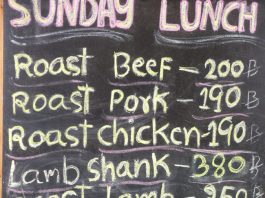 SUNDAY LUNCH
Roast Beef - 200 ฿
Roast Pork - 190 ฿
Roast chicken - 190 ฿
Lamb shank - 380 ฿
Roast Lamb - 350